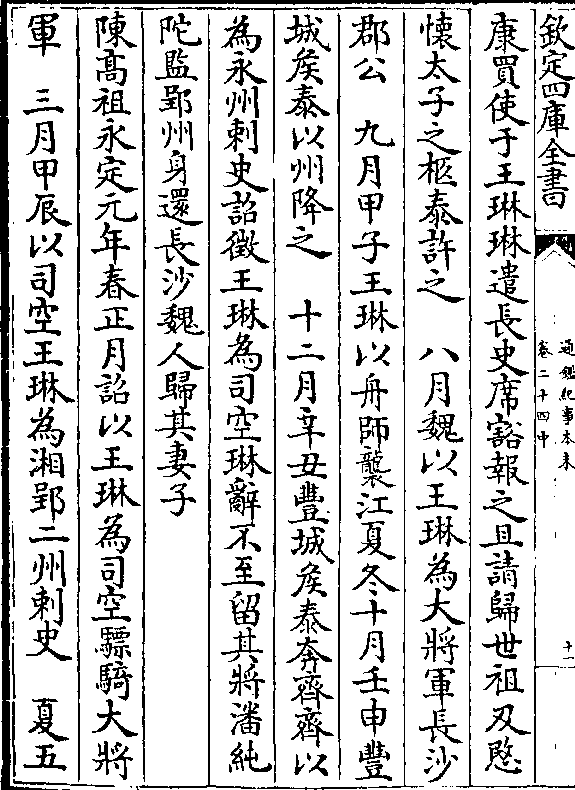 欽定四庫全書
通鑑紀事本末
卷二十四中
十一
康買使于王琳琳遣長史席豁報之且請歸世祖及愍
懷太子之柩泰許之　八月魏以王琳為大將軍長沙
郡公　九月甲子王琳以舟師襲江夏冬十月壬申豐
城侯泰以州降之　十二月辛丑豐城侯泰奔齊齊以
為永州刺史詔徵王琳為司空琳辭不至留其將潘純
陀監郢州身還長沙魏人歸其妻子
陳高祖永定元年春正月詔以王琳為司空驃騎大將
軍　三月甲辰以司空王琳為湘郢二州刺史　夏五